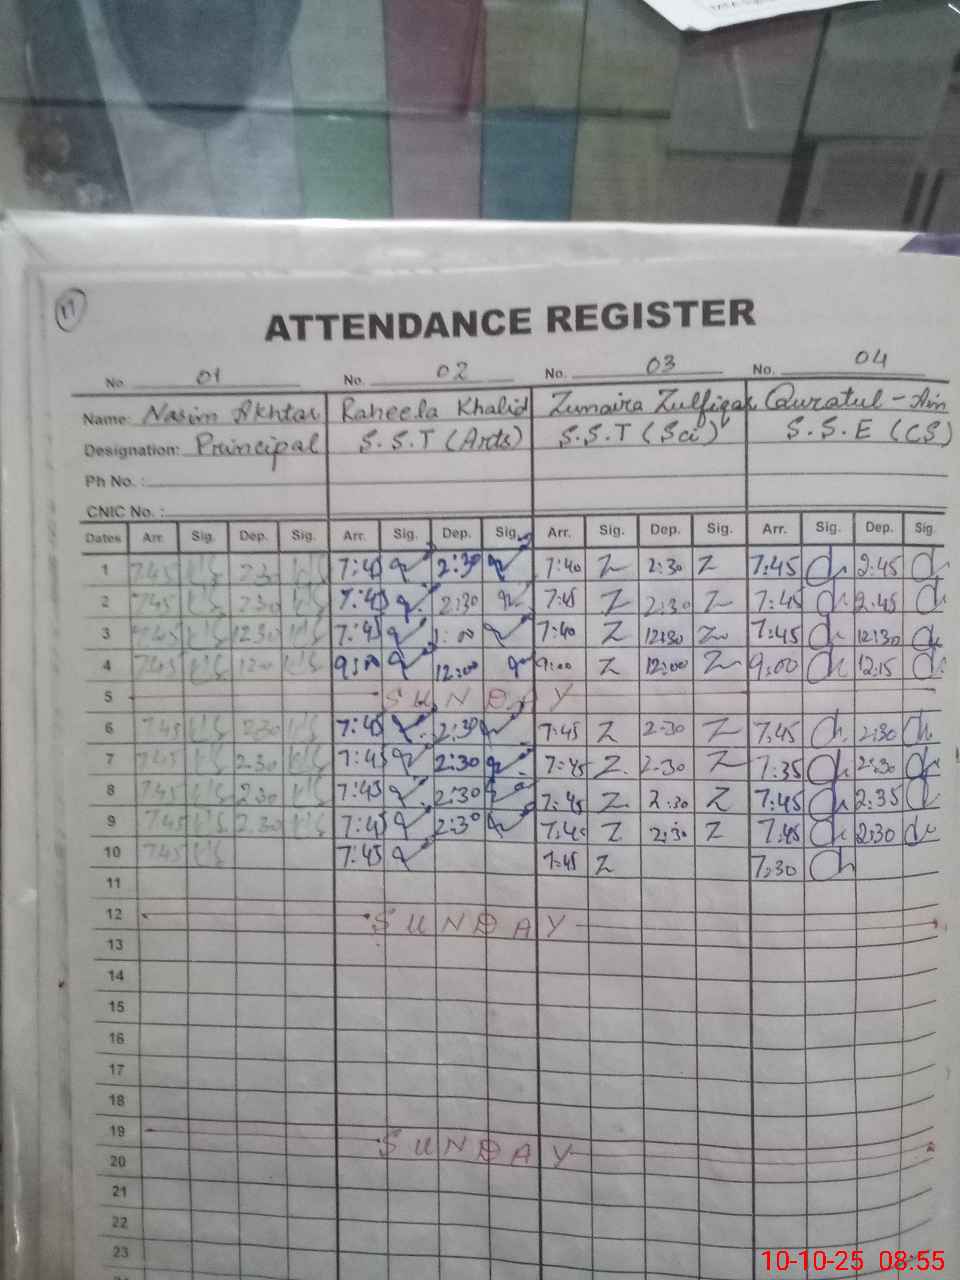 17
ATTENDANCE REGISTER
No. 01 No. 02 No. 03 No. 04
Name: Nasim Akhtar Raheela Khalid Zunaira Zulfiqar Quratul-Ain
Designation: Principal S.S.T (Arts) S.S.T (Sci) S.S.E (CS)
Ph No. :
CNIC No. :
Dates Arr. Sig. Dep. Sig. Arr. Sig. Dep. Sig. Arr. Sig. Dep. Sig. Arr. Sig. Dep. Sig.
1 7:45 2:30 7:45 2:30 7:40 Z 2:30 Z 7:45 2:45
2 7:45 2:30 7:45 2:30 7:45 Z 2:30 Z 7:45 2:45
3 7:45 12:30 7:45 1:00 7:40 Z 12:30 Z 7:45 12:30
4 7:45 12:00 9:00 12:00 9:00 Z 12:00 Z 9:00 12:15
5 SUNDAY
6 7:45 2:30 7:45 2:30 7:45 Z 2:30 Z 7:45 2:30
7 7:45 2:30 7:45 2:30 7:45 Z 2:30 Z 7:35 2:30
8 7:45 2:30 7:45 2:30 7:45 Z 2:30 Z 7:45 2:35
9 7:45 2:30 7:45 2:30 7:40 Z 2:30 Z 7:45 2:30
10 7:45 7:45 7:45 Z 7:30
11
12 SUNDAY
13
14
15
16
17
18
19 SUNDAY
20
21
22
23
10-10-25 08:55